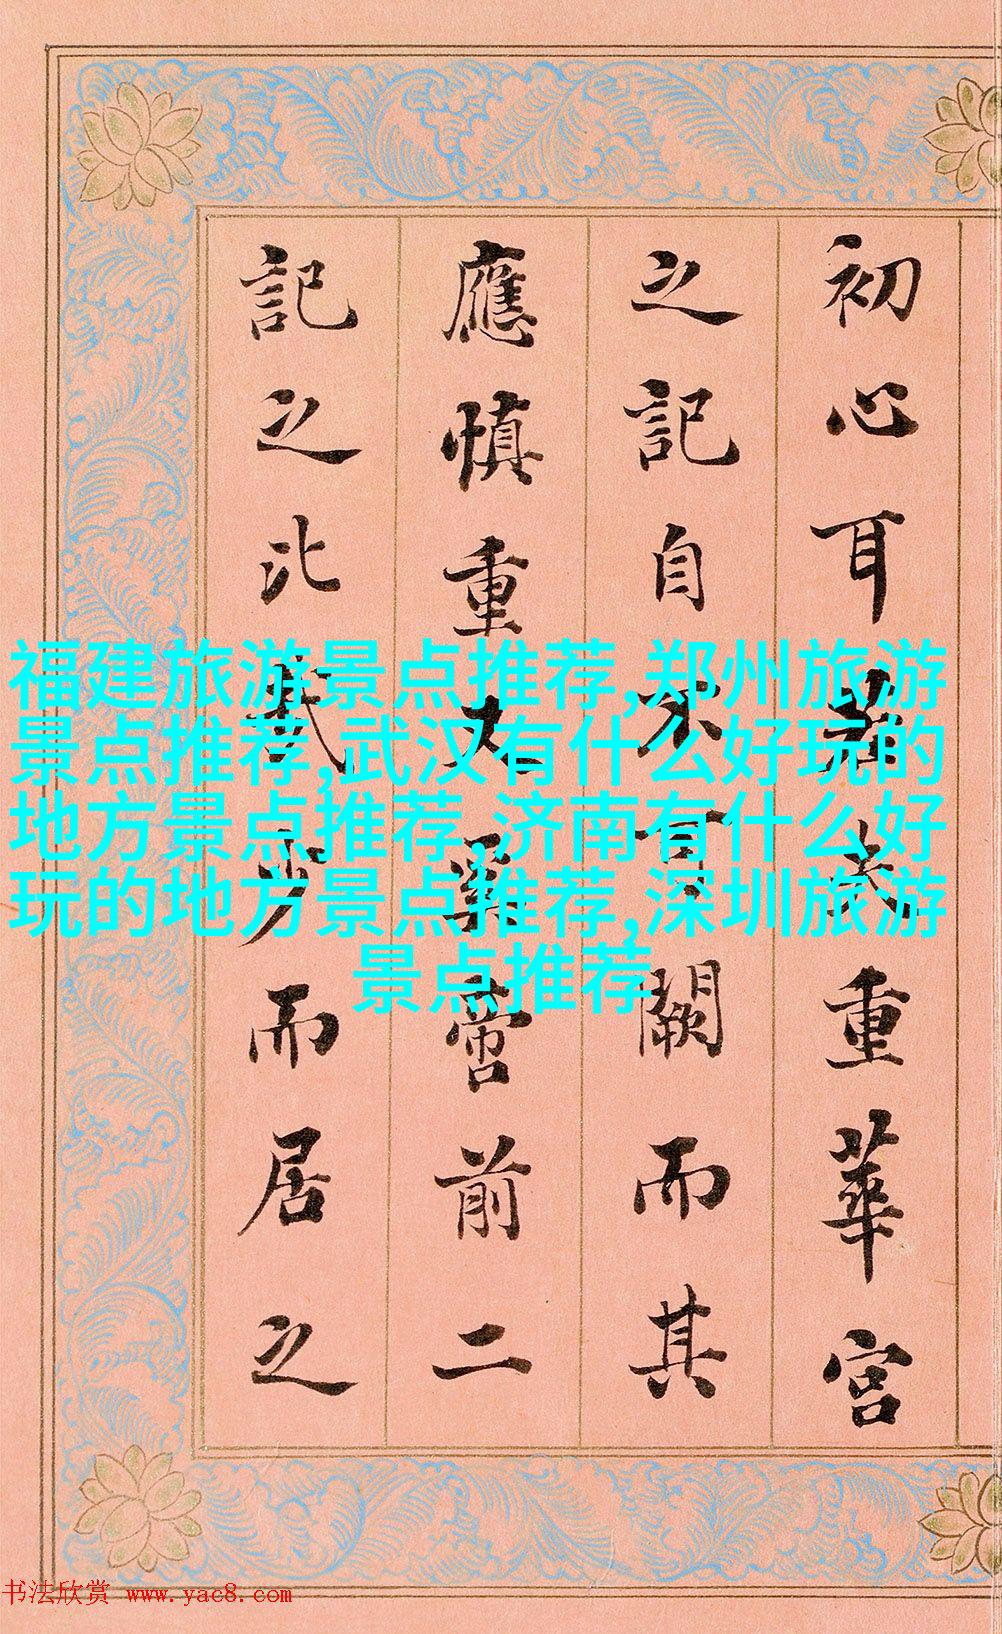 初心耳若夫重華宮
之記自不可闕而其
應慎重又奚啻前二
記之比哉而居之
福建旅游景点推荐,郑州旅游
景点推荐,武汉有什么好玩的
地方景点推荐,济南有什么好
玩的地方景点推荐,深圳旅游
景点推荐
书法欣赏 www.yac8.com